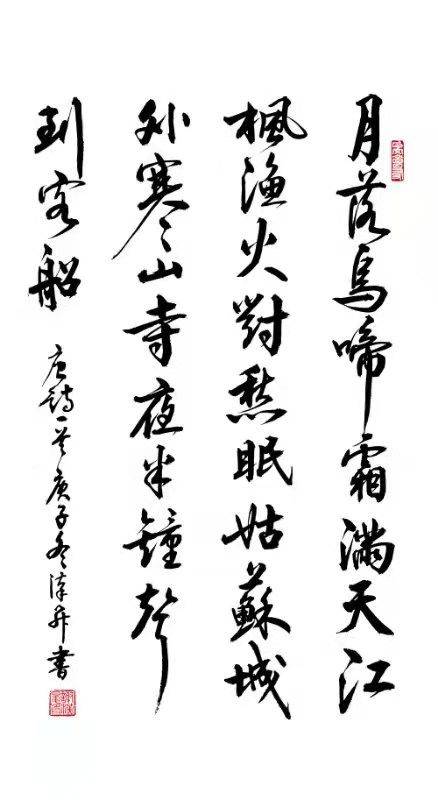 月落烏啼霜滿天江
楓漁火對愁眠姑蘇城
外寒山寺夜半鐘聲
到客船
唐詩一首庚子冬洋舟書